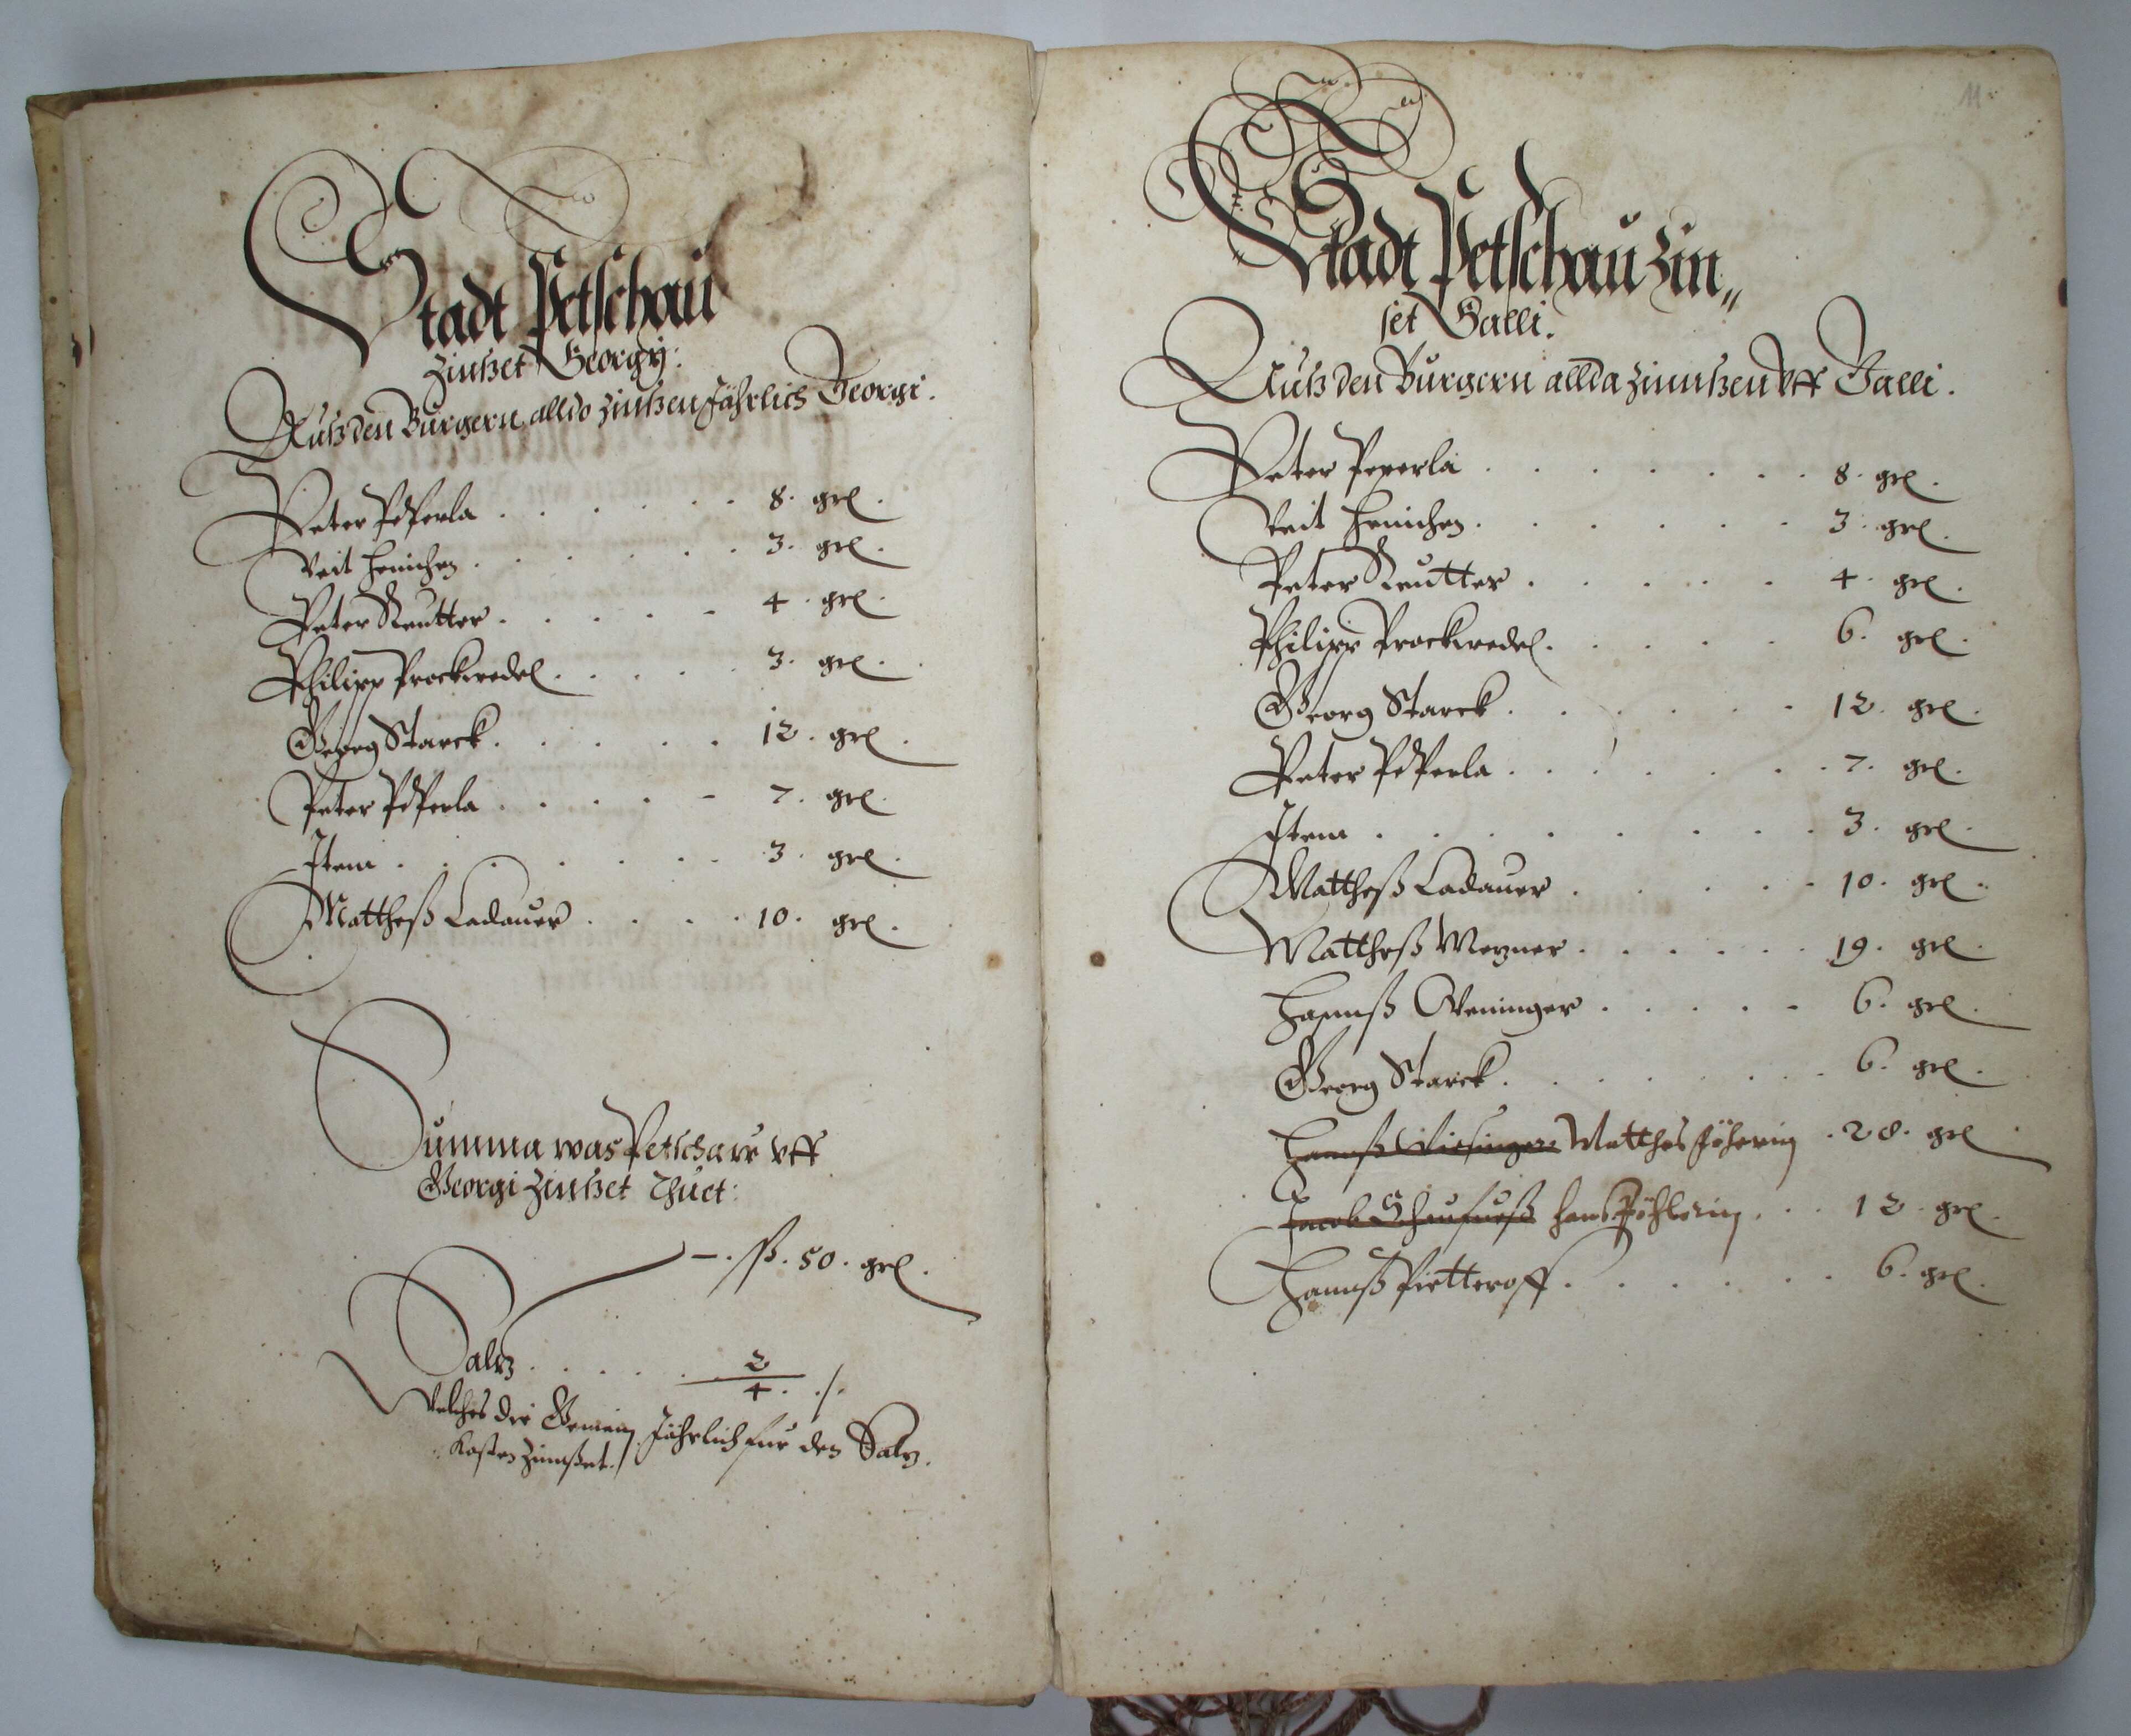 Stadt Petschau
Zinßet Georgÿ:
Auß den Burgern alldo zinßen Jährlich Georgi.
Peter Peperla . . . . . . 8. grl.
Veit Heinichen . . . . . . 3. grl.
Peter Reutter . . . . . 4. grl.
Philipp Prockwedel . . . . 3. grl.
Georg Starck . . . . . 12. grl.
Peter Peperla . . . . . 7. grl.
Item . . . . . . . 3. grl.
Matthesß Ladauer . . . . 10. grl.
Summa was Petschaw vff
Georgi Zinßet Thuet:
–. ß. 50. grl.
Saltz . . . . . 2/4 ./.
Welches die Gemein Jährlich fur den Saltz
Kasten Zinnßet./
11
Stadt Petschau Zin„
set Galli.
Auß den Burgern allda Zinnßen vff Galli.
Peter Peperla . . . . . . . 8. grl.
Veit Heinichen . . . . . . 3. grl.
Peter Reutter . . . . . 4. grl.
Philipp Prockwedel . . . . . 6. grl.
Georg Starck . . . . . . 12. grl.
Peter Peperla . . . . . . . 7. grl.
Item . . . . . . . . 3. grl.
Matthesß Ladauer . . . . . 10. grl.
Matthesß Mezner . . . . . . 19. grl.
Hannß Geninger . . . . . 6. grl.
Georg Starck . . . . . . . 6. grl.
Hannß Matthes . 28. grl.
Jacob Hans . . . 12. grl.
Hannß Pietteroff . . . . . . 6. grl.